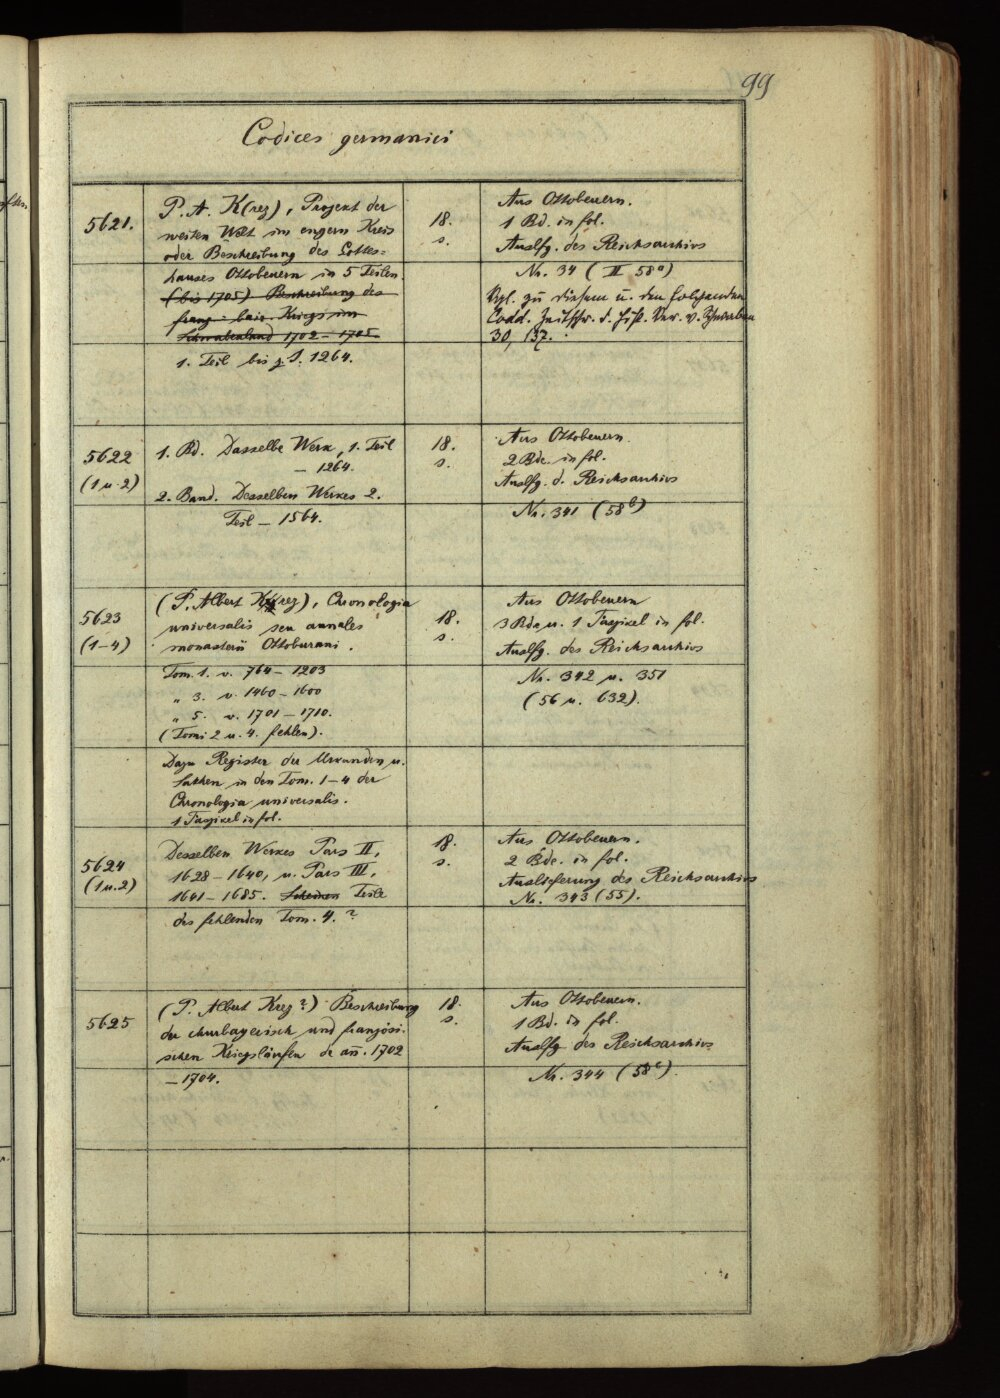 99
Codices germanici
5621.
P. A. K(rez), Projekt der
weiten Welt im engern Kreis
oder Beschreibung des Gottes=
hauses Ottobeuern in 5 Teilen
(bis 1705) Beschreibung des
franz.-bair. Kriegs im
Schwabenland 1702 – 1705.
1. Teil bis z. J. 1264.
18.
s.
Aus Ottobeuern.
1 Bd. in fol.
Auslfg. des Reichsarchivs
Nr. 34 (II 58a)
Vgl. zu diesem u. den folgenden
Codd. Zeitschr. d. Hist. Ver. v. Schwaben
30, 137.
5622
(1 u. 2)
1. Bd. Dasselbe Werk, 1. Teil
– 1264.
2. Band. Desselben Werkes 2.
Teil – 1564.
18.
s.
Aus Ottobeuern.
2 Bde. in fol.
Auslfg. d. Reichsarchivs
Nr. 341 (58b)
5623
(1–4)
(P. Albert Krez), Chronologia
universalis seu annales
monasterii Ottoburani.
Tom. 1. v. 764 – 1203
„ 3. v. 1460 – 1600
„ 5. v. 1701 – 1710.
(Tomi 2 u. 4. fehlen).
Dazu Register der Urkunden u.
Sachen in den Tom. 1–4 der
Chronologia universalis.
1 Faszikel in fol.
18.
s.
Aus Ottobeuern
3 Bde u. 1 Faszikel in fol.
Auslfg. des Reichsarchivs
Nr. 342 u. 351
(56 u. 632).
5624
(1 u. 2)
Desselben Werkes Pars II,
1628 – 1640, u. Pars III,
1641 – 1685. Scheinen Teile
des fehlenden Tom. 4. ?
18.
s.
Aus Ottobeuern.
2 Bde. in fol.
Auslieferung des Reichsarchivs
Nr. 343 (55).
5625
(P. Albert Krez?) Beschreibung
der churbayerisch und französi-
schen Kriegsläufen de añ. 1702
– 1704.
18.
s.
Aus Ottobeuern.
1 Bd. in fol.
Auslfg des Reichsarchivs
Nr. 344 (58c).